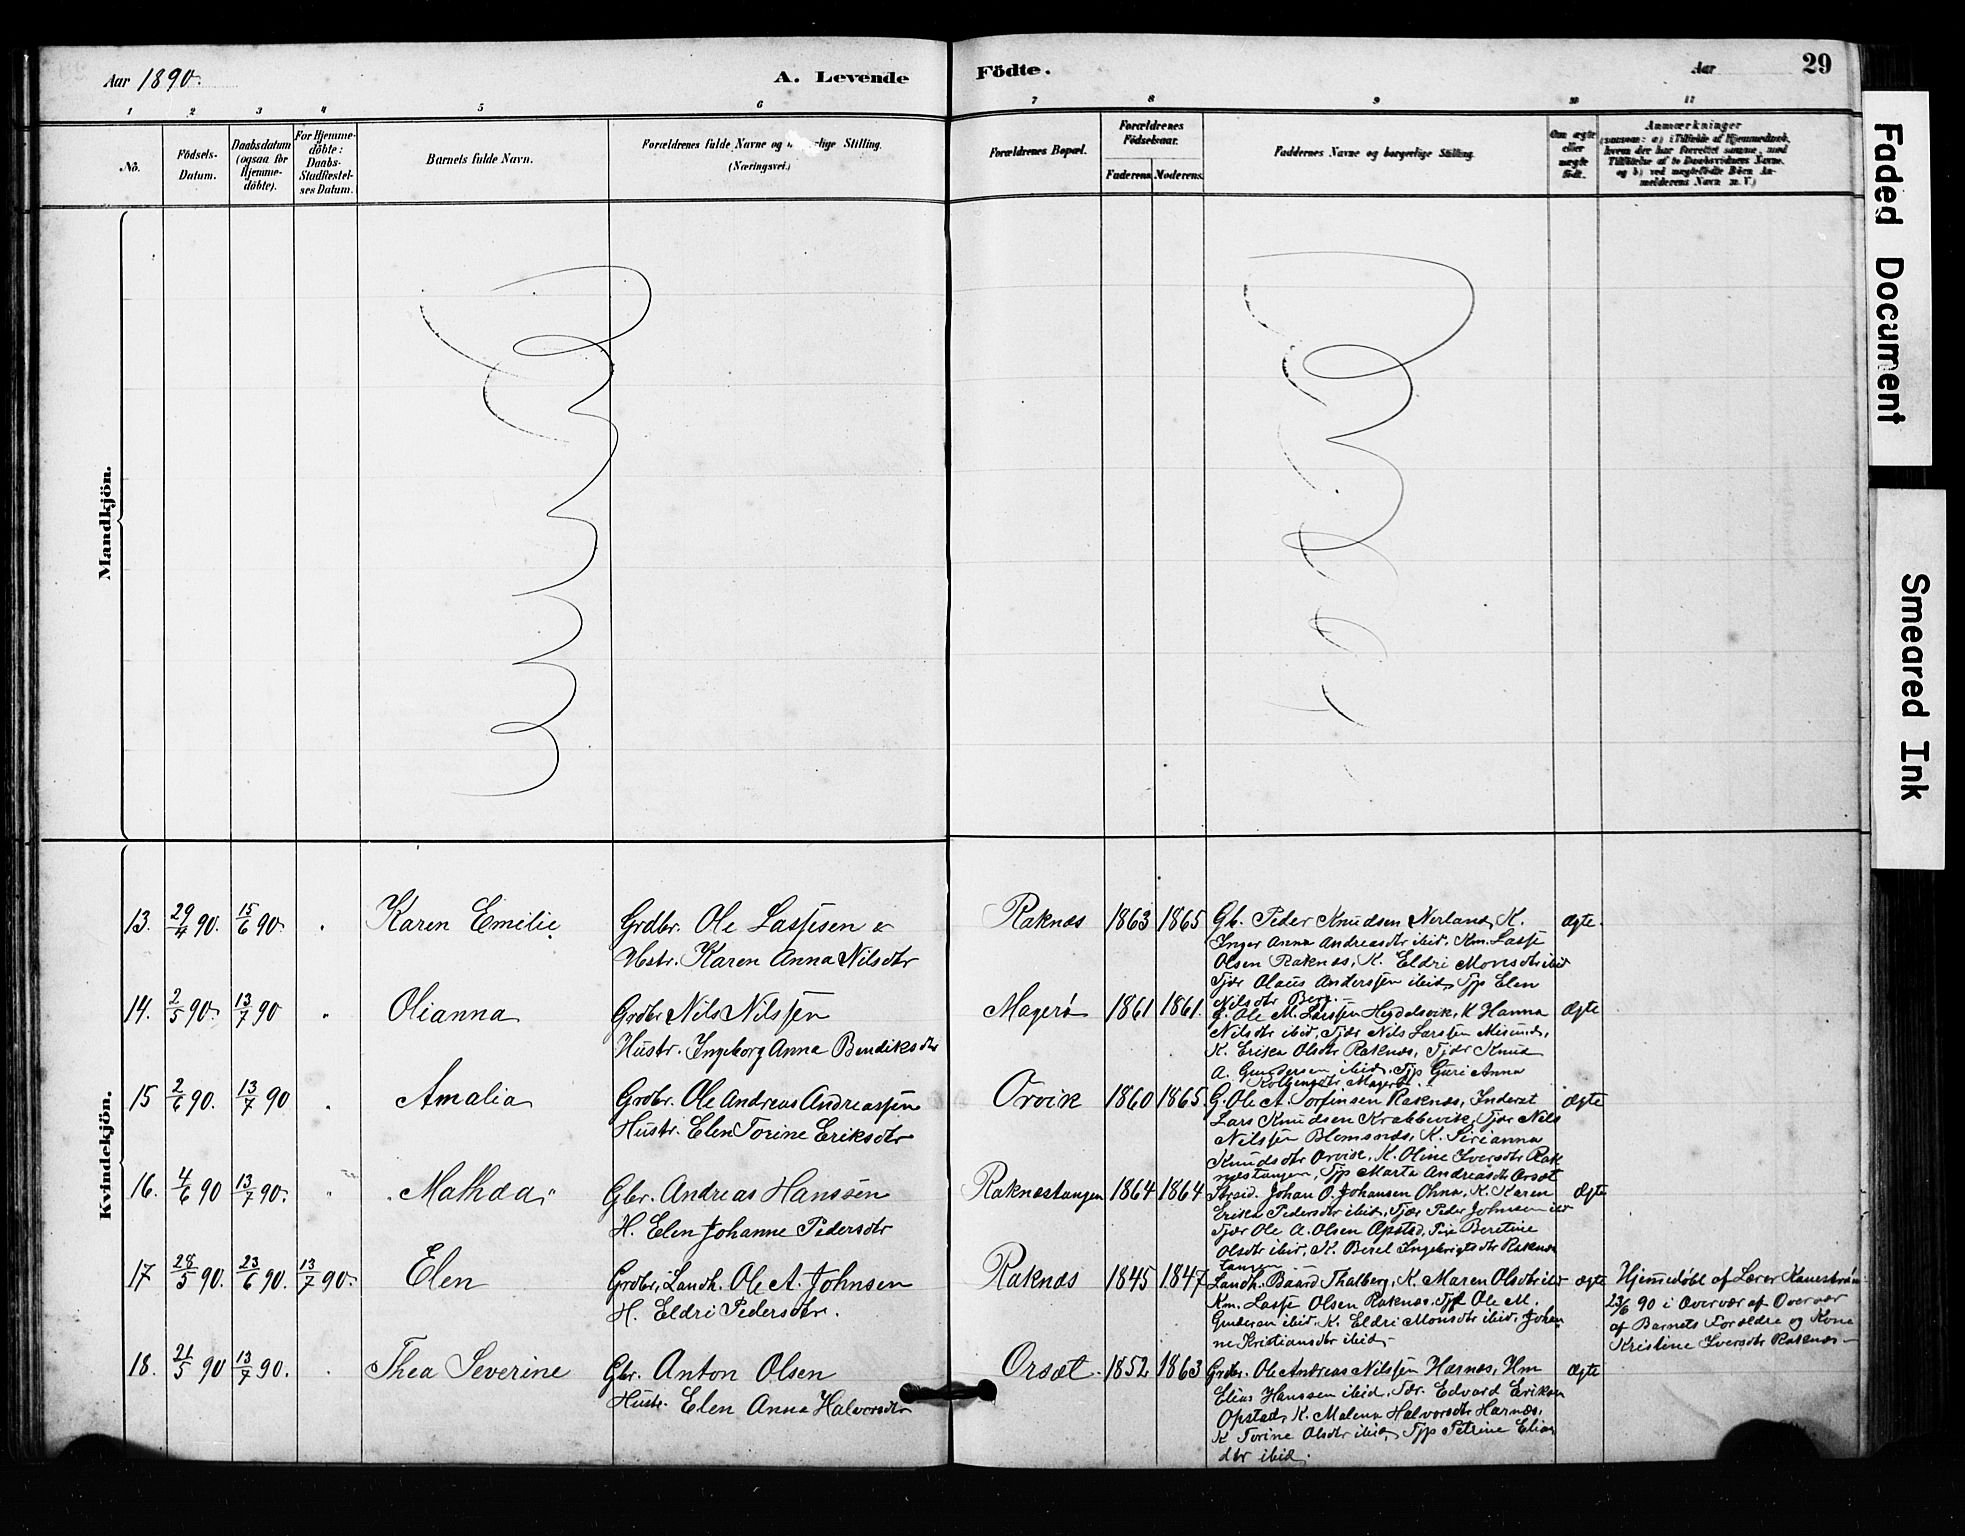 Aar 1890.
A. Levende
Födte.
Aar
29
1 2 3 4 5 6 7 8 9 10 11
No.
Födsels-
Datum.
Daabsdatum
(ogsaa for
Hjemme-
döbte).
For Hjemme-
döbte:
Daabs-
Stadfæstel-
ses Datum.
Barnets fulde Navn.
Forældrenes fulde Navne og borgerlige Stilling.
(Næringsvei.)
Forældrenes Bopæl.
Forældrenes
Födselsaar.
Faderens. Moderens.
Faddernes Navne og borgerlige Stilling.
Om ægte
eller
uægte
født.
Anmærkninger
(saasom: a) i Tilfælde af Hjemmedaab,
hvem der har forrettet samme, med
Tilföielse af to Daabsvidners Navne,
og b) ved uægtefödte Börn An-
melderens Navn m. V.)
Mandkjön.
Kvindekjön.
13. 29/4 90. 15/6 90. Karen Emilie
Grdbr. Ole Lassesen &
Hstr. Karen Anna Nilsdtr
Raknæs 1863 1865
Gb. Peder Knudsen Nerland, K.
Inger Anna Andreasdtr ibid, Km. Lasse
Olsen Raknæs, K. Eldri Monsdtr ibid
Tjdr Olaus Anderssen ibid, Tjp Elen
Nilsdtr Berg.
Ægte.
14. 2/5 90. 13/7 90 " Olianna
Grdbr Nils Nilssen
Hustr. Ingeborg Anna Bendiksdtr
Magerø 1861 1861.
G. Ole M. Larssen Heggdelsvik, K Hanna
Nilsdtr ibid, Tjdr Nils Larssen Misund,
K. Erika Olsdtr Raknæs, Tjdr Knud
A. Gundersen ibid, Tjp Guri Anna
Kolbensdtr Magerø.
Ægte
15 2/6 90. 13/7 90 Amalia
Grdbr. Ole Andreas Andreassen
Hustr. Elen Torine Eriksdtr
Orvik 1860 1865
G. Ole A. Torfinsen Raknæs, Inderst
Lars Knudsen Krabbevik, Tjdr Nils
Nilssen Blomsnæs, K. Sirianna
Knudsdtr Orvik, K. Oline Iversdtr Rak
næstangen, Tjp Marta Andreasdtr Orsæt
Ægte
16. 4/6 90 13/7 90. " Mathda
Gbr. Andreas Hanssen
H. Elen Johanne Pedersdtr
Raknæstangen 1864 1864
Johan O. Johansen Ohna, K. Karen
Erika Pedersdtr ibid, Tjdr Peder Johnsen ibid
Tjdr Ole A. Olsen Opstad, Pie Beretine
Olsdtr ibid, K. Beret Ingebrigtsdtr Raknæs
tangen
Ægte
17 28/5 90. 23/6 90. 13/7 90. Elen
Grdbr, Landh. Ole A. Johnsen
H. Eldri Pedersdtr.
Raknæs 1845 1847
Landh. Baard Thalberg, K. Maren Olsdtr ibid
Km. Lasse Olsen Raknæs, Ole M.
Gundersen ibid, K. Eldri Monsdtr ibid, Johan
ne Kristiansdtr ibid
Ægte
Hjemmedøbt af Lærer Kanestrøm
23/6 90 i Overvær af Overvær
af Barnets Forældre og Kone
Kristine Iversdtr Raknæs
18. 21/5 90 13/7 90. Thea Severine
Gbr. Anton Olsen
Hustr. Elen Anna Halvorsdtr
Orsæt 1852 1863
Grdbr. Ole Andreas Nilssen Harnæs, Km
Elias Hanssen ibid, Tdr. Edvard Eriksen
Opstad, K. Malena Halvorsdtr Harnæs,
K Torine Olsdtr ibid, Tjp Petrine Elias
dtr ibid.
Ægte
Faded Document
Smeared Ink